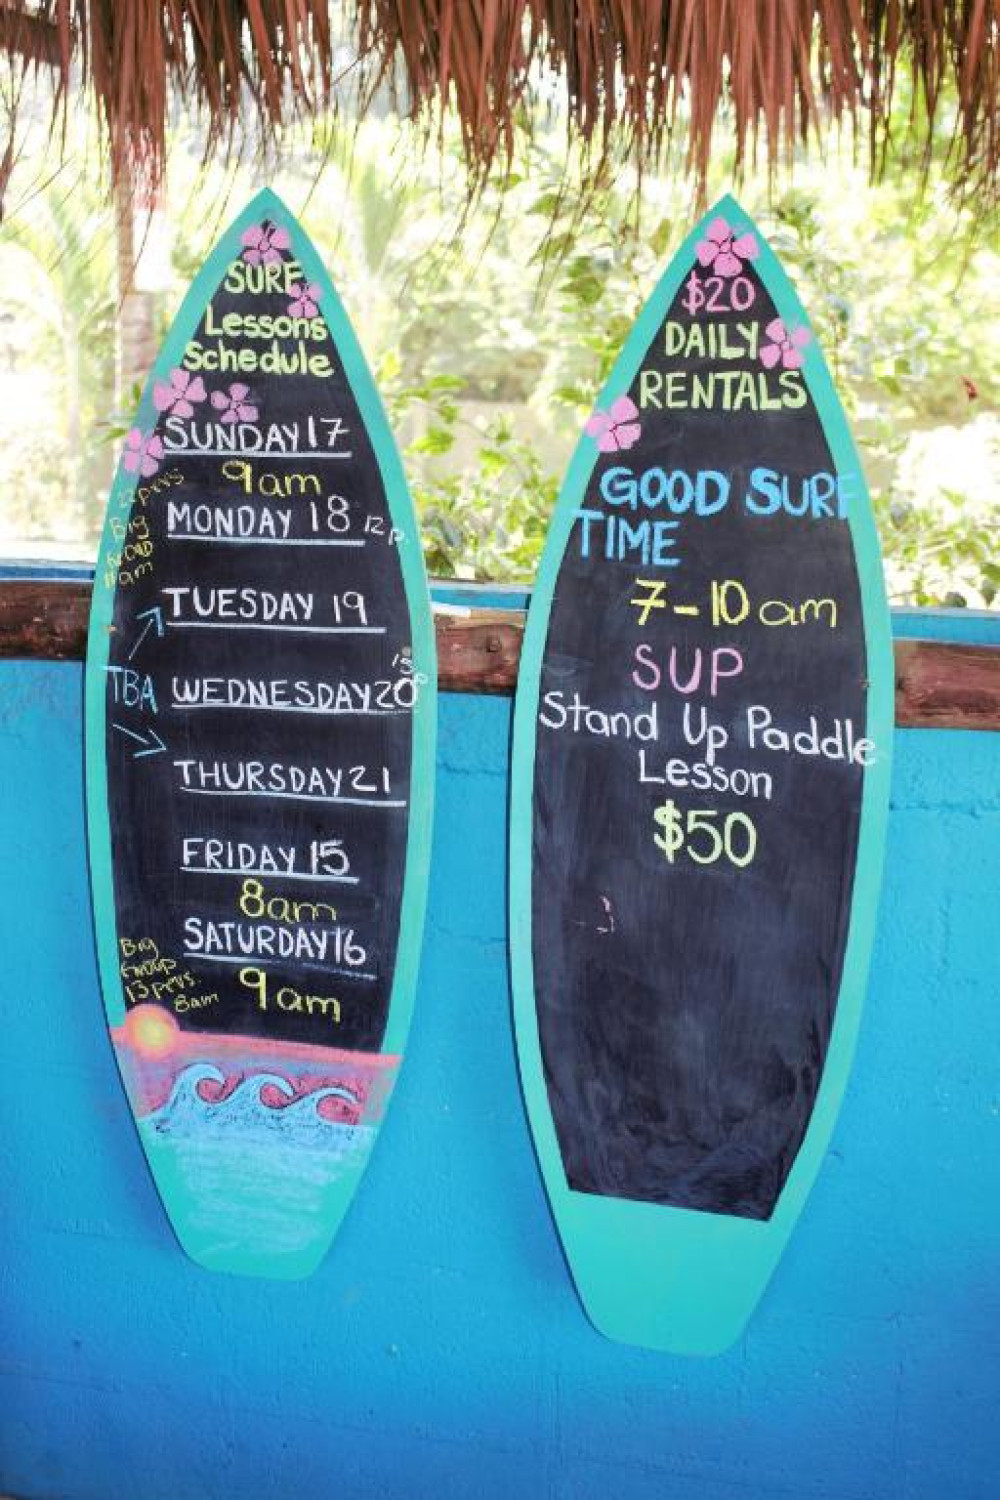 SURF
Lessons
Schedule
SUNDAY 17
9am
22 pers
Big
Group
11am
MONDAY 18 12 p.
TUESDAY 19
TBA
WEDNESDAY 20
THURSDAY 21
FRIDAY 15
8am
SATURDAY 16
9am
Big
Group
13 pers.
8am
$20
DAILY
RENTALS
GOOD SURF
TIME
7-10 am
SUP
Stand Up Paddle
Lesson
$50